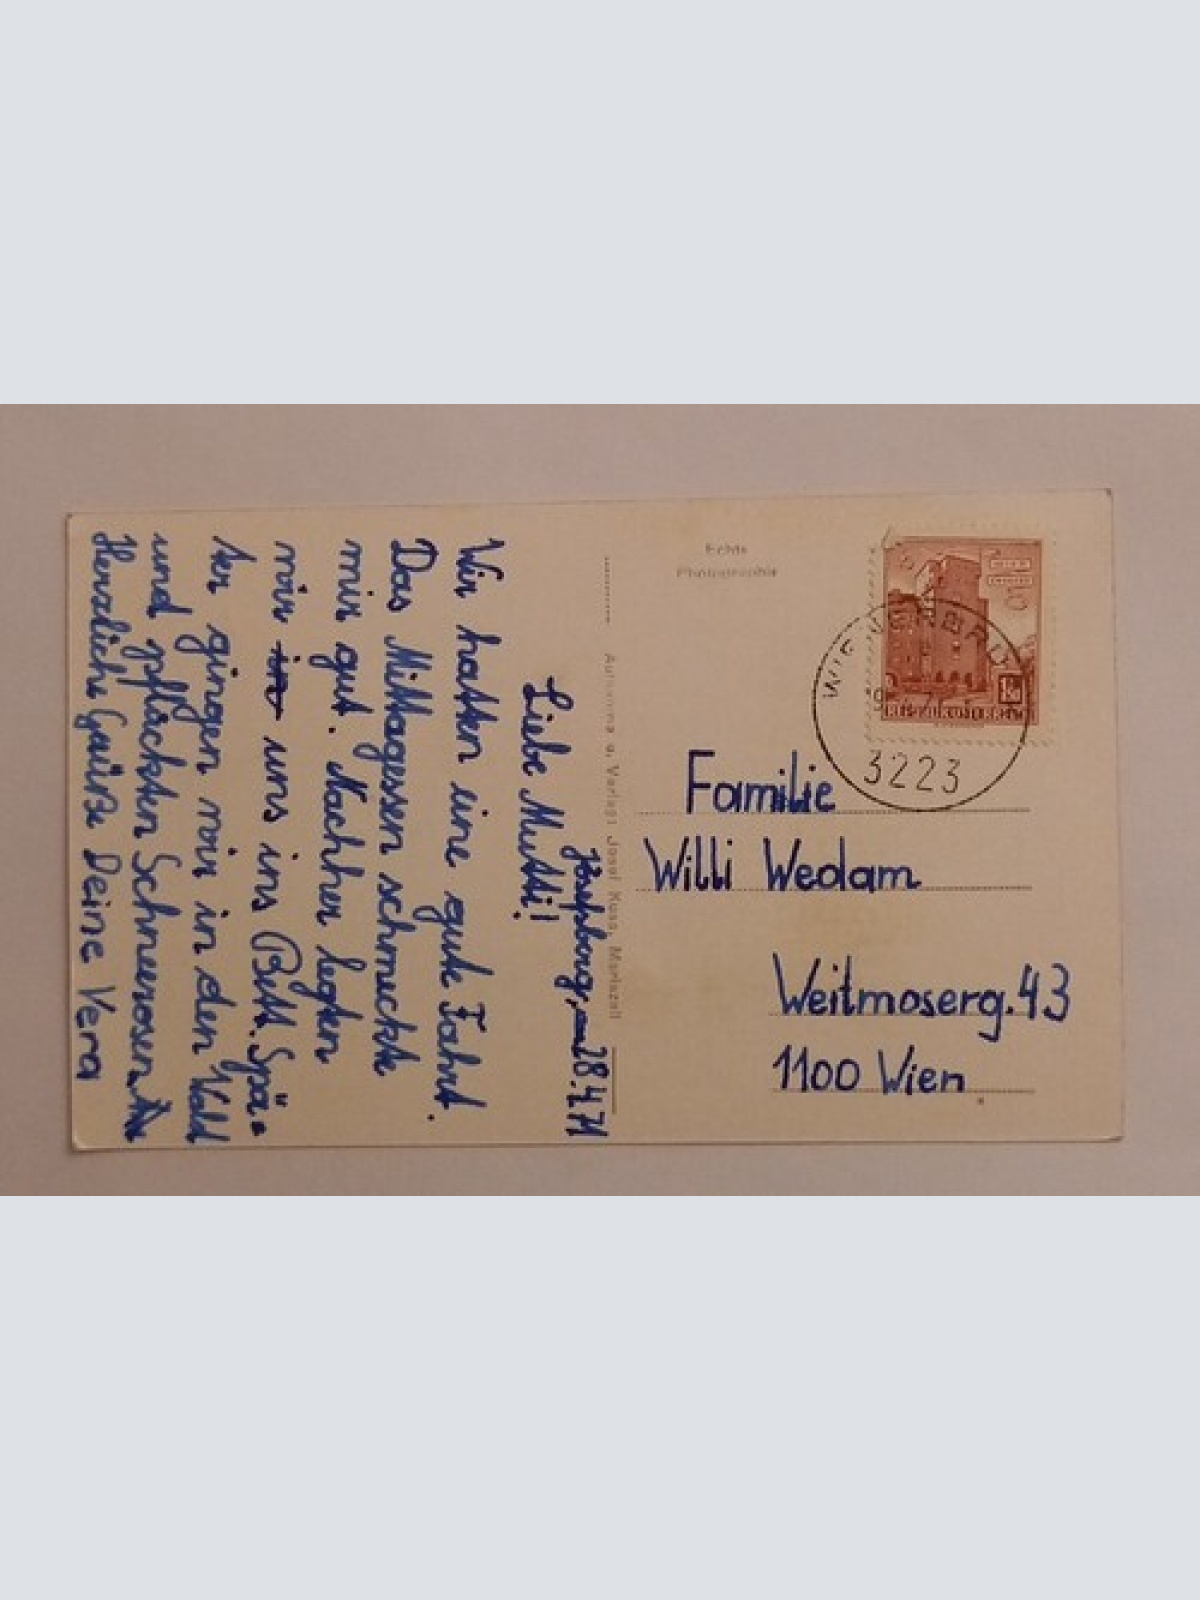 Josefsberg, 28.4.71
Liebe Mutti!
Wir hatten eine gute Fahrt.
Das Mittagessen schmeckte
mir gut. Nachher legten
wir uns ins Bett. Spä=
ter gingen wir in den Wald
und pflückten Schneerosen.
Herzliche Grüße Deine Vera
Echte
Photographie
Aufnahme u. Verlag: Josef Kuss, Mariazell
REPUBLIK ÖSTERREICH
3223
Familie
Willi Wedam
Weitmoserg. 43
1100 Wien